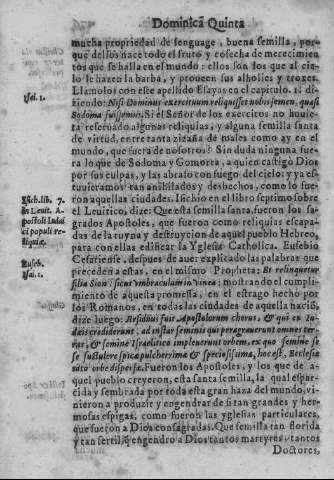 Dominica Quinta
mucha propriedad de lenguage, buena semilla, por-
que dellos nace todo el fruto y cosecha de merecimien
tos que se halla en el mundo: ellos son los que al cie-
lo le hazen la barba, y proueen sus alholies y troxes.
Llamolos con este apellido Esayas en el capitulo. 1. di
ziendo: Nisi Dominus exercituum reliquisset nobis semen, quasi
Sodoma fuissemus. Si el Señor de los exercitos no huuie
ra reseruado algunas reliquias, y alguna semilla santa
de virtud, entre tanta zizaña de males como ay en el
mundo, que fuera de nosotros? Sin duda ninguna fue
ra lo que de Sodoma y Gomorra, a quien castigó Dios
por sus culpas, y las abrasò con fuego del cielo: y ya es
tuuieramos tan anihilados y deshechos, como lo fue-
ron aquellas ciudades. Isichio en el libro septimo sobre
el Leuitico, dize: Que esta semilla santa, fueron los sa-
grados Apostoles, que fueron como reliquias escapa-
das de la ruyna y destruycion de aquel pueblo Hebreo,
para con ellas edificar la Yglesia Catholica. Eusebio
Cesariense, despues de auer explicado las palabras que
preceden a estas, en el mismo Propheta: Et relinquetur
filia Sion sicut vmbraculum in vinea: mostrando el cumpli-
miento de aquesta promessa, en el estrago hecho por
los Romanos, en todas las ciudades de aquella nació,
dize luego: Residuus fuit Apostolorum chorus, & qui ex Iu-
dæis crediderunt, ad instar seminis qui peragrauerunt omnes ter-
ras, & semine Israelitico impleuerunt orbem, ex quo semine se
se sustulere spicæ pulcherrimæ & speciosissimæ, hoc est, Ecclesiæ
toto orbe dispersæ. Fueron los Apostoles, y los que de a-
quel pueblo creyeron, esta santa semilla, la qual espar-
cida y sembrada por toda esta gran haza del mundo, vi-
nieron a produzir y engendrar de si tan grandes y her-
mosas espigas, como fueron las yglesias particulares,
que fueron a Dios consagradas. Que semilla tan florida
y tan fertil, q̃ engendro a Dios tantos martyres, y tantos
Doctores,
Isai. 1.
Isich. lib. 7.
in Leuit. A-
postoli Iudai
ci populi re-
liquiæ.
Euseb.
Isai. 1.